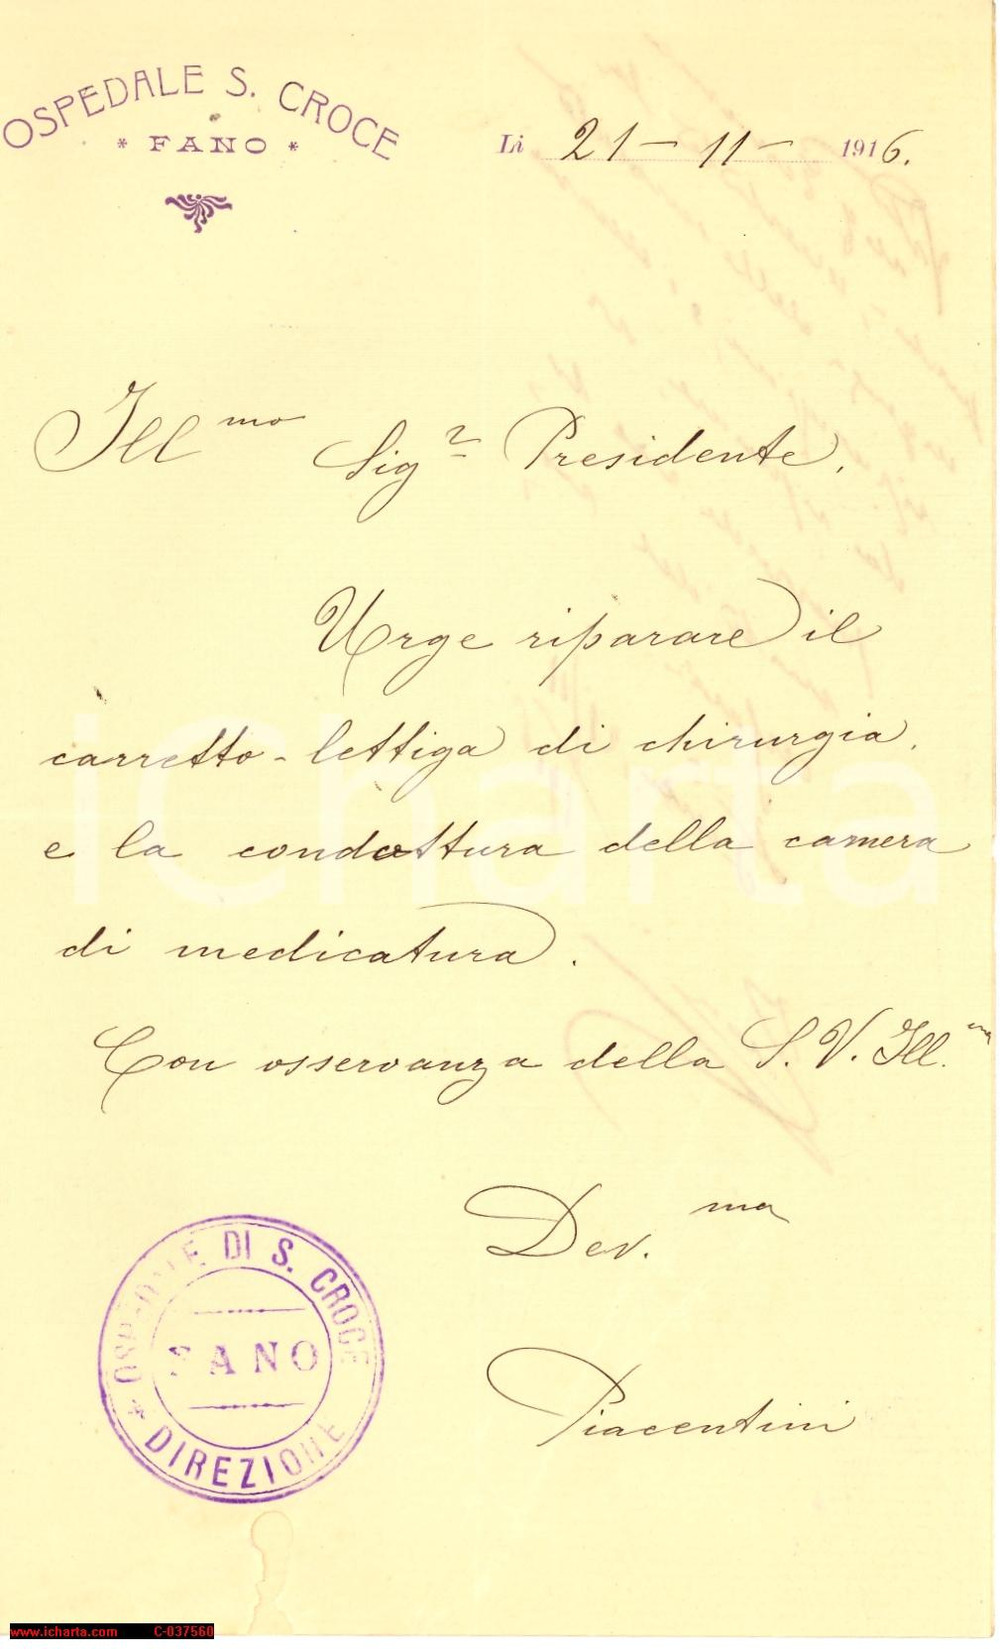 OSPEDALE S. CROCE
* FANO *
Li 21 - 11 - 1916.
Ill.mo Sig.r Presidente,
Urge riparare il
carretto-lettiga di chirurgia,
e la condottura della camera
di medicatura.
Con osservanza della S. V. Ill.ma
Dev.ma
Piacentini
OSPEDALE DI S. CROCE
FANO
* DIREZIONE
iCharta
www.icharta.com C-037560